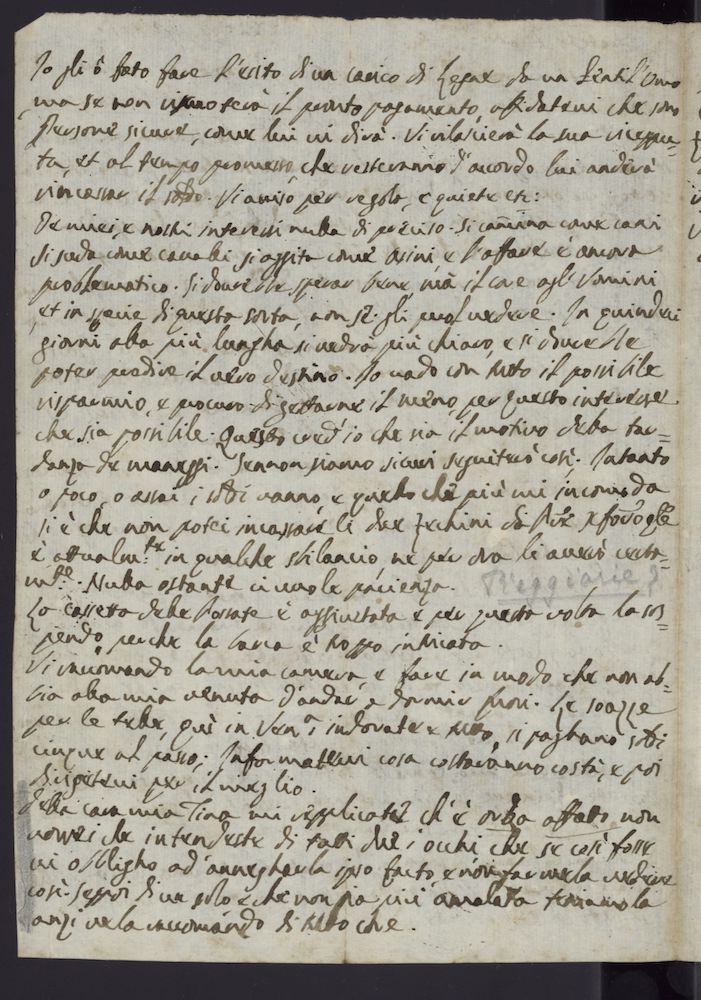 Io gli ò fato fare l'esito di un carico di Legne da un Zentil'Omo
ma se non rimoterà il pronto pagamento, affidatevi che sono
Persone sicure, come lui vi dirà. Vi rilascierà la sua ricevu-
ta, et al tempo promesso, che resteranno d'acordo lui anderà
rincassar il soldo. Vi aviso per regola, e quiete etc:
De miei, e nostri interessi nulla di preciso. Si camina come cani
si suda come cavalli si agita come asini e l'affare è ancora
problematico. Si dovrebbe sperar bene, mà il core agl'Uomini
et in specie di questa sorta, non se gli puol vedere. In quindeci
giorni alla più lungha si vedrà più chiaro, e si dovrebbe
poter predire il vero destino. Io vado con tutto il possibile
risparmio, e procuro di gettarne il meno, per questo interesse
che sia possibile. Questo cred'io che sia il motivo della tar=
danza de maneggi. Se non siamo sicuri seguiterò così. Intanto
o poco, o assai i soldi vanno, e quello che più mi incomoda
si è che non potei incassare li due Zechini
è attualmte in qualche sbilancio, ne per ora li averò certa=
mte. Nulla ostante ci vuole pacienza.
Pieggiarie?
La cassetta delle Possate è aggiustata e per questa volta la sos=
pendo, perche la barca è troppo intricata.
Vi raccomando la mia camera, e fare in modo che non ab=
bia alla mia venuta d'andar a dormir fuori. Le soazze
per le telle, quì in Vena indorate e tutto, si paghano soldi
cinque al passo; Informattevi cosa costaranno costà, e poi
dirigetevi per il meglio.
Della cara mia Tina mi replicate ch'è orba affatto, non
vorrei che intendeste di tutti due i occhi che se così fosse
vi obligho ad'anneghar la ipso facto e non farmela vedere
così. Se poi di un solo e che non sia più amalata teniamola
anzi ve la raccomando di tutto core.